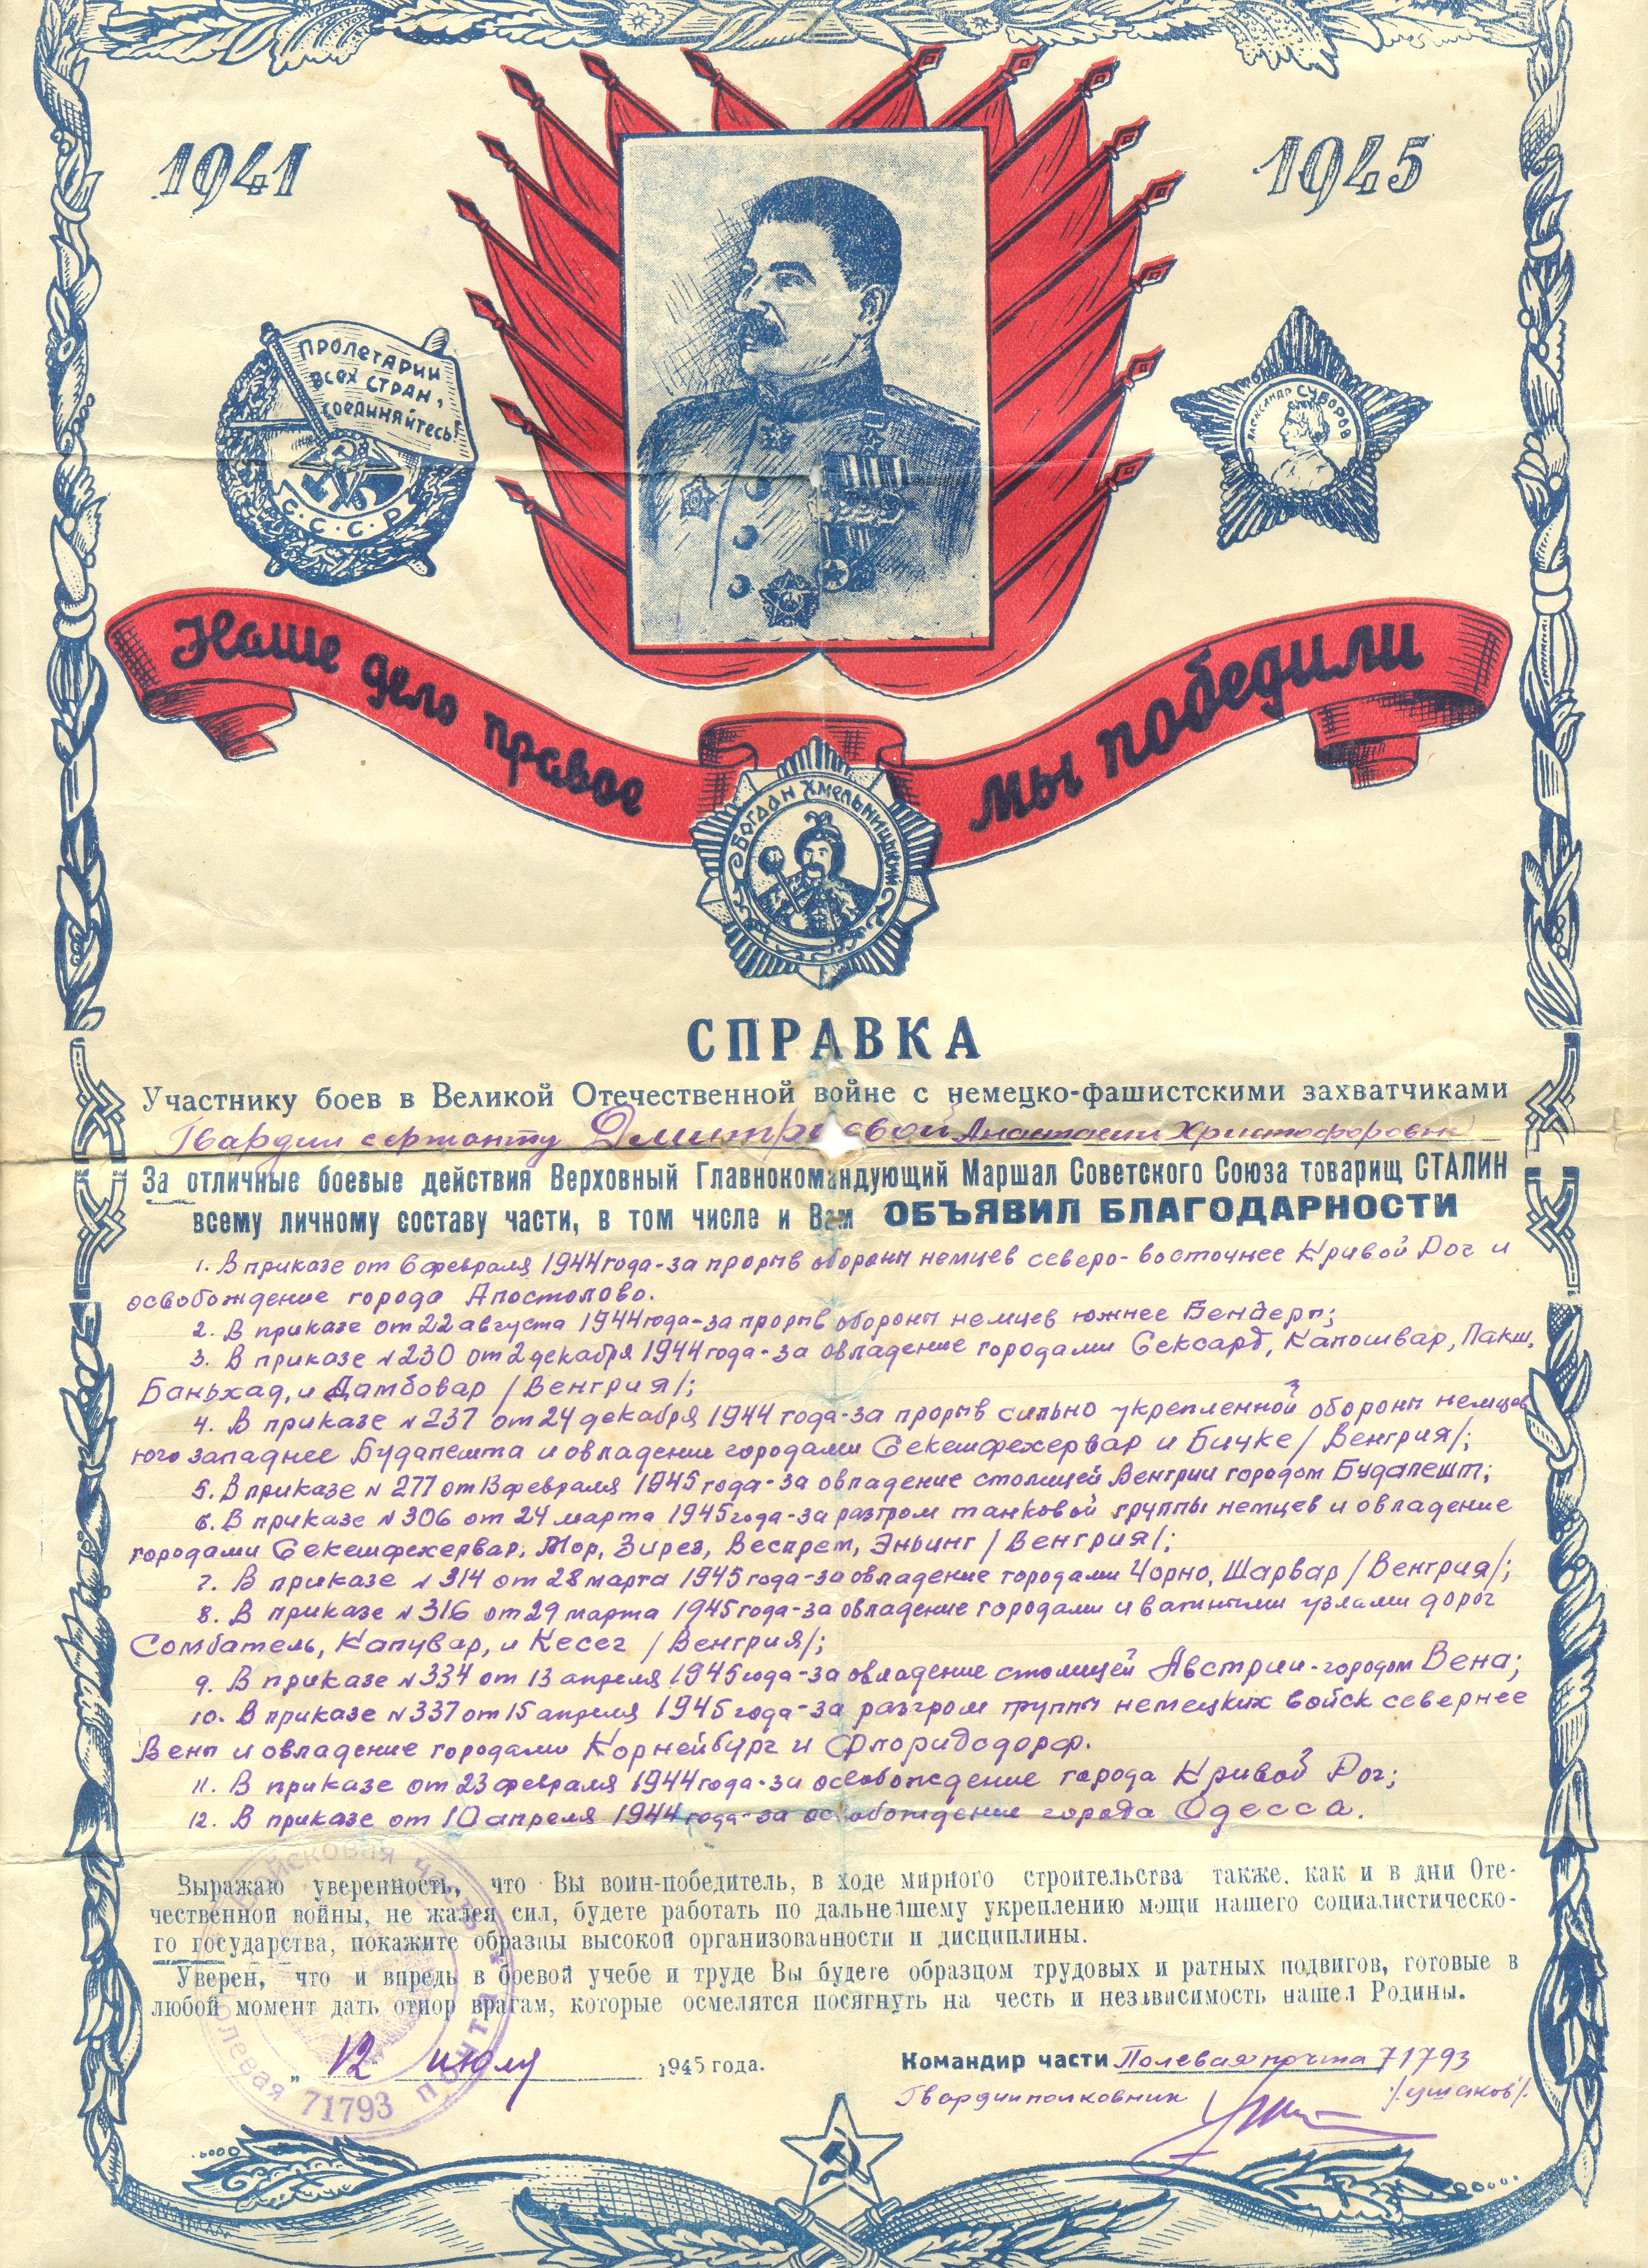 1941
1945
ПРОЛЕТАРИИ
ВСЕХ СТРАН,
СОЕДИНЯЙТЕСЬ!
С.С.С.Р
АЛЕКСАНДР СУВОРОВ
Наше дело правое
мы победили
БОГДАН ХМЕЛЬНИЦКИЙ
СПРАВКА
Участнику боев в Великой Отечественной войне с немецко-фашистскими захватчиками
Гвардии сержанту Дмитриевой Анастасии Христофоровне
За отличные боевые действия Верховный Главнокомандующий Маршал Советского Союза товарищ СТАЛИН
всему личному составу части, в том числе и Вам ОБЪЯВИЛ БЛАГОДАРНОСТИ
1. В приказе от 6 февраля 1944 года-за прорыв обороны немцев северо-восточнее Кривой Рог и
освобождение города Апостолово.
2. В приказе от 22 августа 1944 года-за прорыв обороны немцев южнее Бендеры;
3. В приказе №230 от 2 декабря 1944 года-за овладение городами Сексард, Капошвар, Пакш,
Баньхад, и Дамбовар /Венгрия/;
4. В приказе №237 от 24 декабря 1944 года-за прорыв сильно укрепленной обороны немцев
юго западнее Будапешта и овладении городами Секешфехервар и Бичке /Венгрия/;
5. В приказе №277 от 13 февраля 1945 года-за овладение столицей Венгрии городом Будапешт;
6. В приказе №306 от 24 марта 1945 года-за разгром танковой группы немцев и овладение
городами Секешфехервар, Мор, Зирез, Веспрем, Эньинг /Венгрия/;
7. В приказе №314 от 28 марта 1945 года-за овладение городами Чорно, Шарвар /Венгрия/;
8. В приказе №316 от 29 марта 1945 года-за овладение городами и важными узлами дорог
Сомбатель, Капувар, и Кесег /Венгрия/;
9. В приказе №334 от 13 апреля 1945 года-за овладение столицей Австрии-городом Вена;
10. В приказе №337 от 15 апреля 1945 года-за разгром группы немецких войск севернее
Вены и овладение городами Корнейбург и Флоридсдорф.
11. В приказе от 23 февраля 1944 года-за освобождение города Кривой Рог;
12. В приказе от 10 апреля 1944 года-за освобождение города Одесса.
Выражаю уверенность, что Вы воин-победитель, в ходе мирного строительства также, как и в дни Оте-
чественной войны, не жалея сил, будете работать по дальнейшему укреплению мощи нашего социалистическо-
го государства, покажите образцы высокой организованности и дисциплины.
Уверен, что и впредь в боевой учебе и труде Вы будете образцом трудовых и ратных подвигов, готовые в
любой момент дать отпор врагам, которые осмелятся посягнуть на честь и независимость нашей Родины.
„ 12 июля 1945 года.
Командир части Полевая почта 71793
Гвардии полковник /Ушаков/.
Войсковая часть
полевая почта
71793